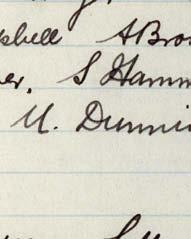 pbell A Bro
er, S Hamm
U. Dunni